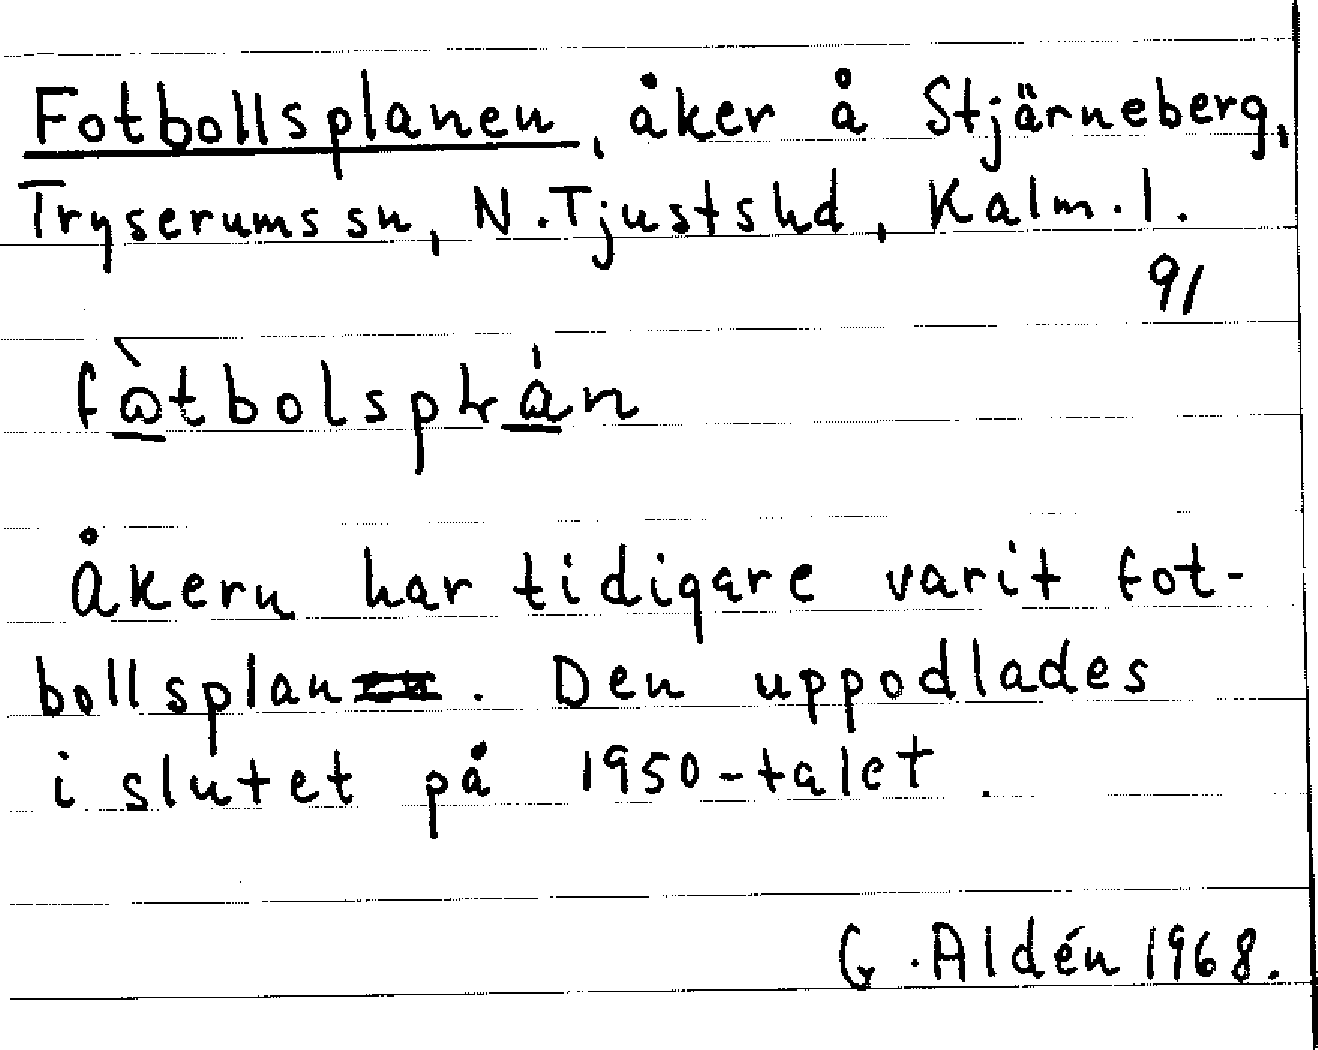 Fotbollsplanen, åker å Stjärneberg,
Tryserums sn, N. Tjusts hd, Kalm. l.
91
Åkern har tidigare varit fot-
bollsplan. Den uppodlades
i slutet på 1950-talet.
G. Aldén 1968.